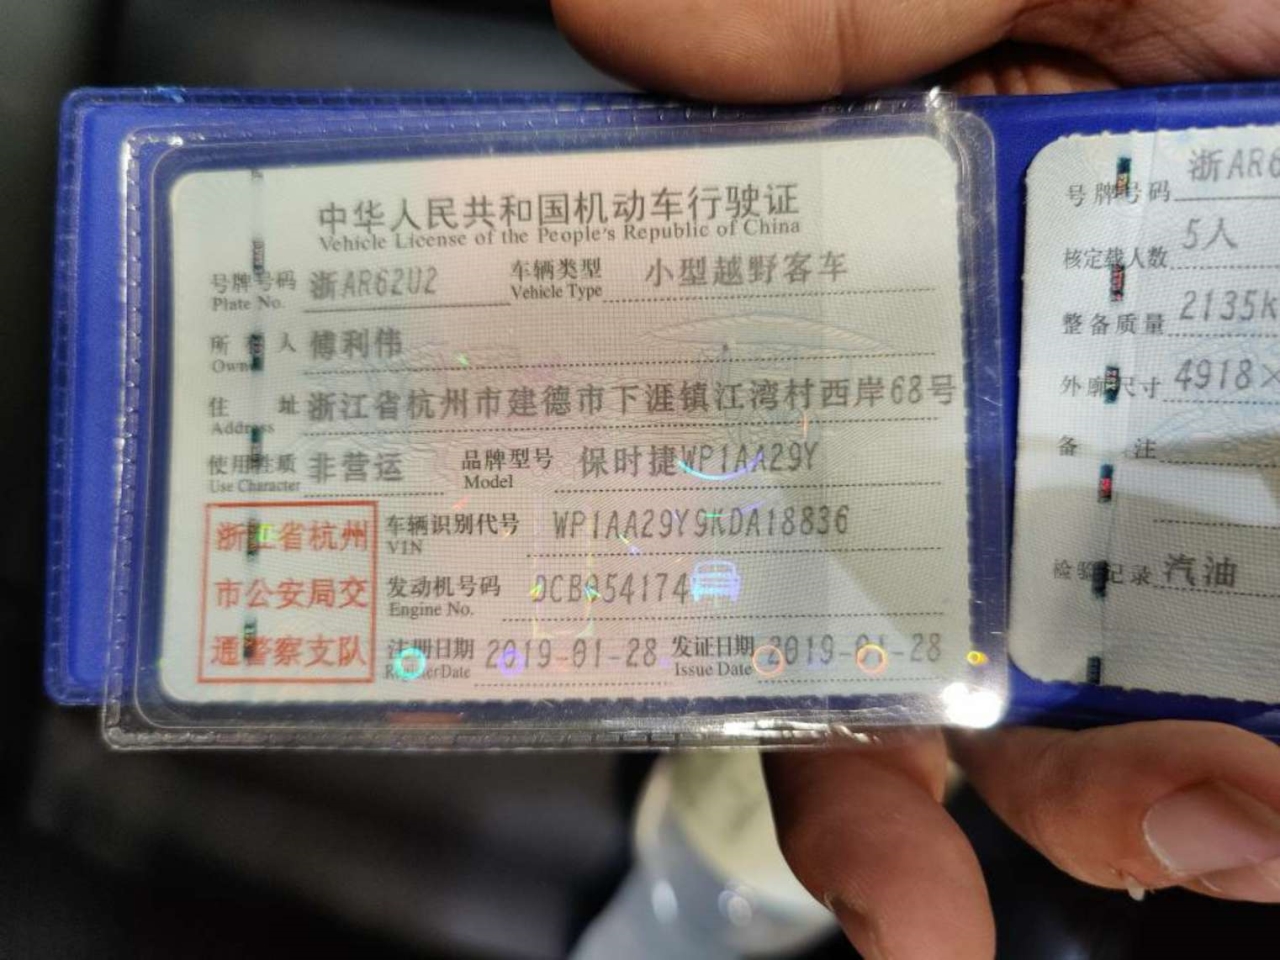 中华人民共和国机动车行驶证
Vehicle License of the People's Republic of China
号牌号码 浙AR62U2 车辆类型 小型越野客车
Plate No. Vehicle Type
所有人 傅利伟
Owner
住 址 浙江省杭州市建德市下涯镇江湾村西岸68号
Address
使用性质 非营运 品牌型号 保时捷WP1AA29Y
Use Character Model
浙江省杭州
市公安局交
通警察支队
车辆识别代号 WP1AA29Y9KDA18836
VIN
发动机号码 DCB054174
Engine No.
注册日期 2019-01-28 发证日期 2019-01-28
Register Date Issue Date
号牌号码 浙AR6
核定载人数 5人
整备质量 2135K
外廓尺寸 4918×
备 注
检验记录 汽油